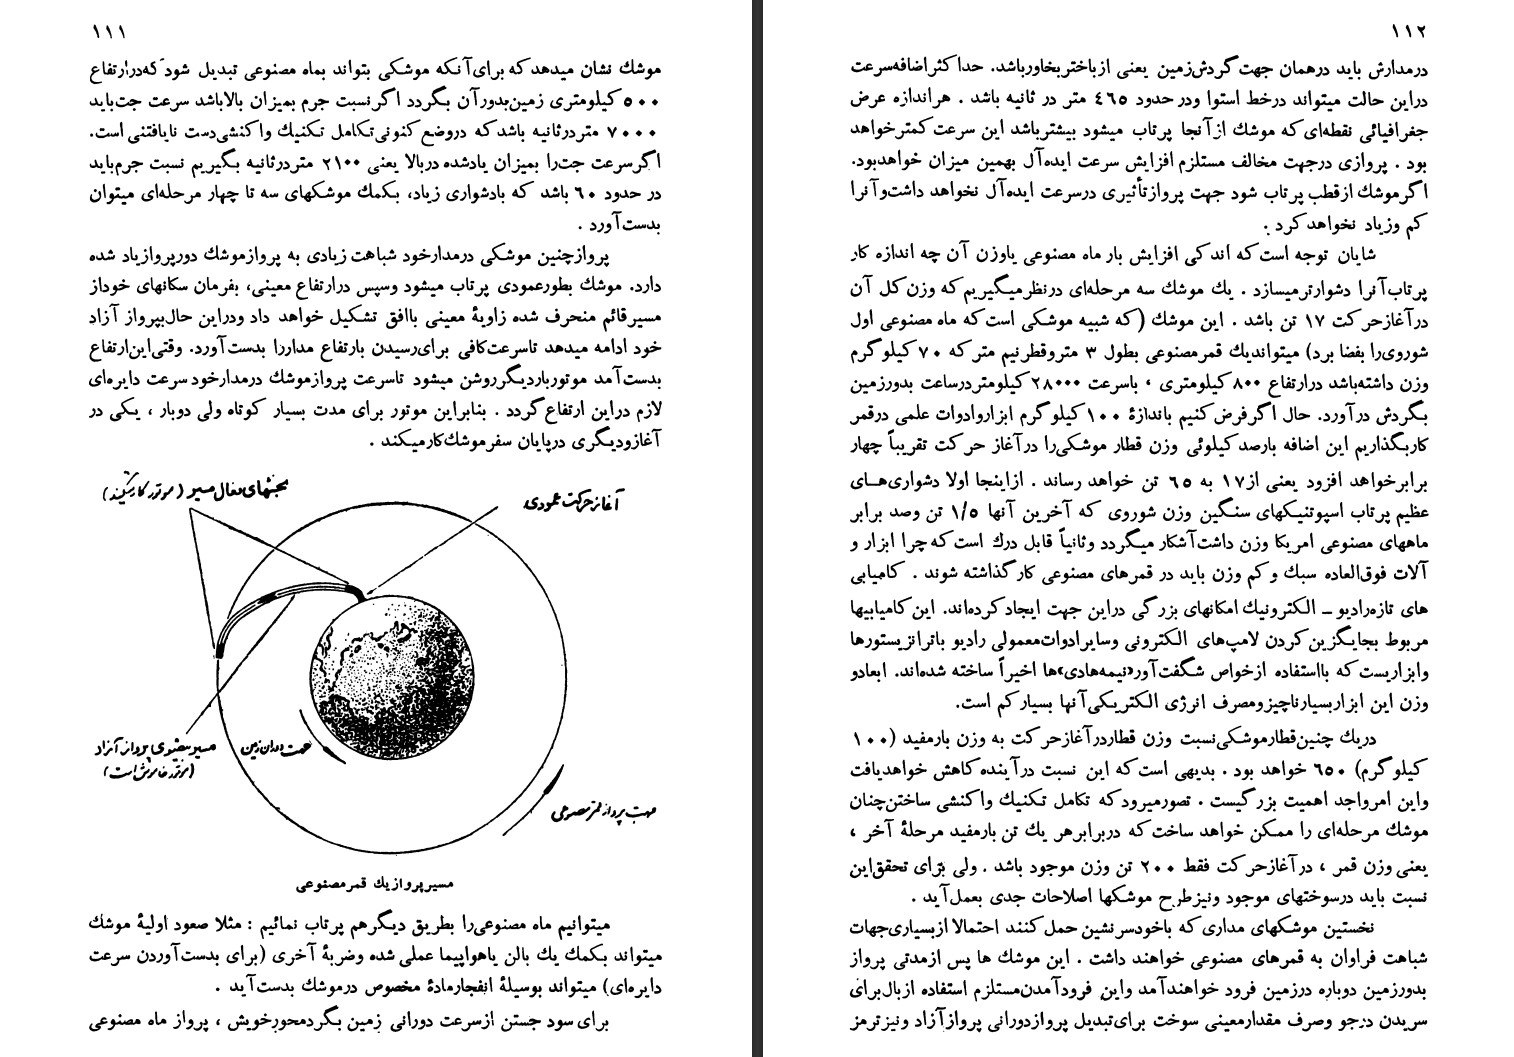 ۱۱۱
موشك نشان میدهد که برای آنکه موشکی بتواند بماه مصنوعی تبدیل شود که درارتفاع
۵۰۰ کیلومتری زمین بدور آن بگردد اگر نسبت جرم بمیزان بالا باشد سرعت جت باید
۷۰۰۰ متر در ثانیه باشد که در وضع کنونی تکامل تکنیك واکنشی دست نایافتنی است.
اگر سرعت جت را بمیزان یادشده در بالا یعنی ۲۱۰۰ متر در ثانیه بگیریم نسبت جرم باید
در حدود ۶۰ باشد که با دشواری زیاد، بکمك موشکهای سه تا چهار مرحله‌ای میتوان
بدست آورد .
پرواز چنین موشکی در مدار خود شباهت زیادی به پرواز موشك دورپرواز یاد شده
دارد. موشك بطور عمودی پرتاب میشود وسپس در ارتفاع معینی، بفرمان سکانهای خود از
مسیر قائم منحرف شده زاویهٔ معینی با افق تشکیل خواهد داد و در این حال بپرواز آزاد
خود ادامه میدهد تا سرعت کافی برای رسیدن بارتفاع مدار را بدست آورد. وقتی این ارتفاع
بدست آمد موتور بار دیگر روشن میشود تا سرعت پرواز موشك در مدار خود سرعت دایره‌ای
لازم در این ارتفاع گردد . بنابراین موتور برای مدت بسیار کوتاه ولی دوبار ، یکی در
آغاز و دیگری در پایان سفر موشك کار میکند .
بخشهای فعال مسیر (موتور کار میکند)
آغاز حرکت عمودی
مسیر بیضوی پرواز آزاد
(موتور خاموش است)
جهت دوران زمین
جهت پرواز قمر مصنوعی
مسیر پرواز یك قمر مصنوعی
میتوانیم ماه مصنوعی را بطریق دیگر هم پرتاب نمائیم : مثلا صعود اولیهٔ موشك
میتواند بکمك یك بالن یا هواپیما عملی شده وضربهٔ آخری (برای بدست آوردن سرعت
دایره‌ای) میتواند بوسیلهٔ انفجار مادهٔ مخصوص در موشك بدست آید .
برای سود جستن از سرعت دورانی زمین بگرد محور خویش ، پرواز ماه مصنوعی
۱۱۲
در مدارش باید در همان جهت گردش زمین یعنی از باختر بخاور باشد. حداکثر اضافه سرعت
در این حالت میتواند در خط استوا و در حدود ۴۶۵ متر در ثانیه باشد . هر اندازه عرض
جغرافیائی نقطه‌ای که موشك از آنجا پرتاب میشود بیشتر باشد این سرعت کمتر خواهد
بود . پروازی در جهت مخالف مستلزم افزایش سرعت ایده‌آل بهمین میزان خواهد بود.
اگر موشك از قطب پرتاب شود جهت پرواز تأثیری در سرعت ایده‌آل نخواهد داشت و آنرا
کم وزیاد نخواهد کرد .
شایان توجه است که اندکی افزایش بار ماه مصنوعی یا وزن آن چه اندازه کار
پرتاب آنرا دشوارتر میسازد . یك موشك سه مرحله‌ای در نظر میگیریم که وزن کل آن
در آغاز حرکت ۱۷ تن باشد . این موشك (که شبیه موشکی است که ماه مصنوعی اول
شوروی را بفضا برد) میتواند یك قمر مصنوعی بطول ۳ متر وقطر نیم متر که ۷۰ کیلو گرم
وزن داشته باشد در ارتفاع ۸۰۰ کیلومتری ، با سرعت ۲۸۰۰۰ کیلومتر در ساعت بدور زمین
بگردش در آورد. حال اگر فرض کنیم باندازهٔ ۱۰۰ کیلو گرم ابزار وادوات علمی در قمر
کار بگذاریم این اضافه بار صد کیلوئی وزن قطار موشکی را در آغاز حرکت تقریباً چهار
برابر خواهد افزود یعنی از ۱۷ به ۶۵ تن خواهد رساند . از اینجا اولا دشواری‌هـای
عظیم پرتاب اسپوتنیکهای سنگین وزن شوروی که آخرین آنها ۱/۵ تن وصد برابر
ماههای مصنوعی امریکا وزن داشت آشکار میگردد وثانیاً قابل درك است که چرا ابزار و
آلات فوق‌العاده سبك و کم وزن باید در قمرهای مصنوعی کار گذاشته شوند . کامیابی
های تازه رادیو ــ الکترونیك امکانهای بزرگی در این جهت ایجاد کرده‌اند. این کامیابیها
مربوط بجایگزین کردن لامپ‌های الکترونی وسایر ادوات معمولی رادیو با ترانزیستورها
وابزاریست که بااستفاده ازخواص شگفت‌آور «نیمه‌هادی»ها اخیراً ساخته شده‌اند. ابعاد و
وزن این ابزار بسیار ناچیز ومصرف انرژی الکتریکی آنها بسیار کم است.
در یك چنین قطار موشکی نسبت وزن قطار در آغاز حرکت به وزن بار مفید (۱۰۰
کیلو گرم) ۶۵۰ خواهد بود . بدیهی است که این نسبت در آینده کاهش خواهد یافت
واین امر واجد اهمیت بزرگیست . تصور میرود که تکامل تکنیك واکنشی ساختن چنان
موشك مرحله‌ای را ممکن خواهد ساخت که در برابر هر یك تن بار مفید مرحلهٔ آخر ،
یعنی وزن قمر ، در آغاز حرکت فقط ۲۰۰ تن وزن موجود باشد . ولی برای تحقق این
نسبت باید در سوختهای موجود ونیز طرح موشکها اصلاحات جدی بعمل آید .
نخستین موشکهای مداری که باخود سرنشین حمل کنند احتمالا از بسیاری جهات
شباهت فراوان به قمرهای مصنوعی خواهند داشت . این موشك ها پس از مدتی پرواز
بدور زمین دوباره در زمین فرود خواهند آمد واین فرود آمدن مستلزم استفاده از بال برای
سریدن در جو وصرف مقدار معینی سوخت برای تبدیل پرواز دورانی پرواز آزاد ونیز ترمز